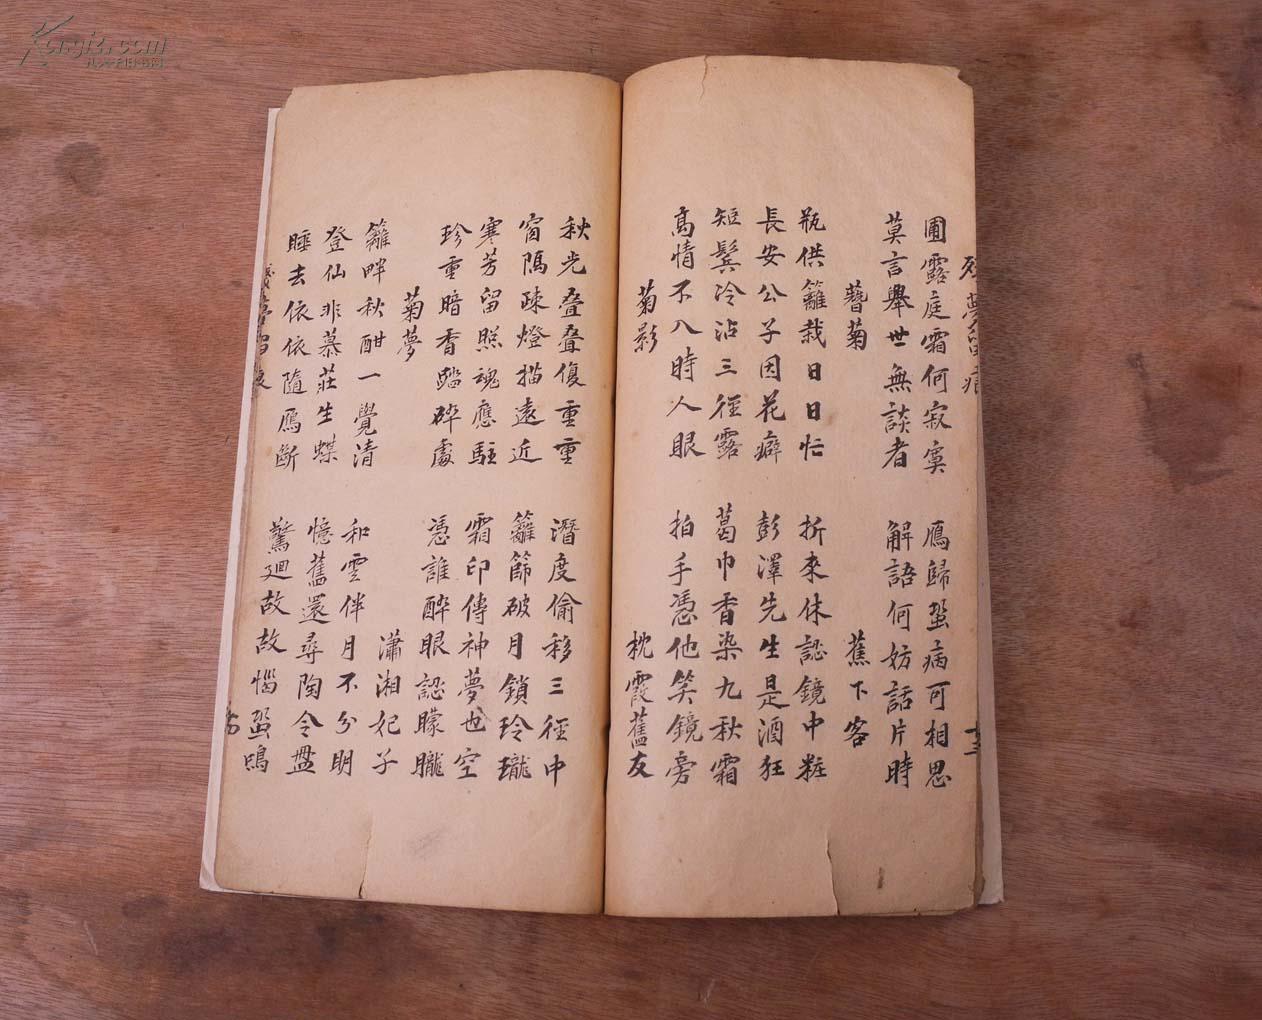 圃露庭霜何寂寞　鴈歸蛩病可相思
莫言舉世無談者　解語何妨話片時
簪菊　蕉下客
瓶供籬栽日日忙　折來休認鏡中粧
長安公子因花癖　彭澤先生是酒狂
短鬓冷沾三徑露　葛巾香染九秋霜
高情不入時人眼　拍手憑他笑鏡旁
菊影　枕霞舊友
秋光叠叠復重重　潛度偷移三徑中
窗隔疎燈描遠近　籬篩破月鎖玲瓏
寒芳留照魂應駐　霜印傳神夢也空
珍重暗香踏碎處　憑誰醉眼認朦朧
菊夢　瀟湘妃子
籬畔秋酣一覺清　和雲伴月不分明
登仙非慕莊生蝶　憶舊還尋陶令盟
睡去依依隨鴈斷　驚廻故故惱蛩鳴